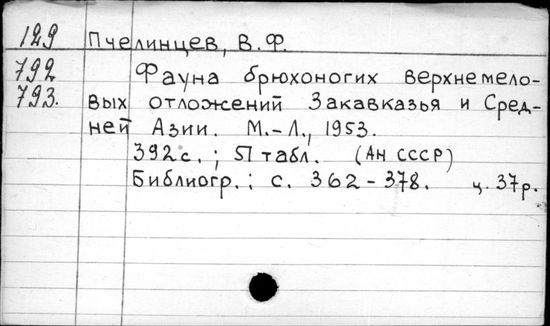 129 Пчелинцев, В.Ф.
792 Фауна брюхоногих верхнемело-
793. вых отложений Закавказья и Сред-
ней Азии. М.-Л., 1953.
392 с. ; 51 табл. (АН СССР)
Библиогр.: с. 362-378. ц. 37р.